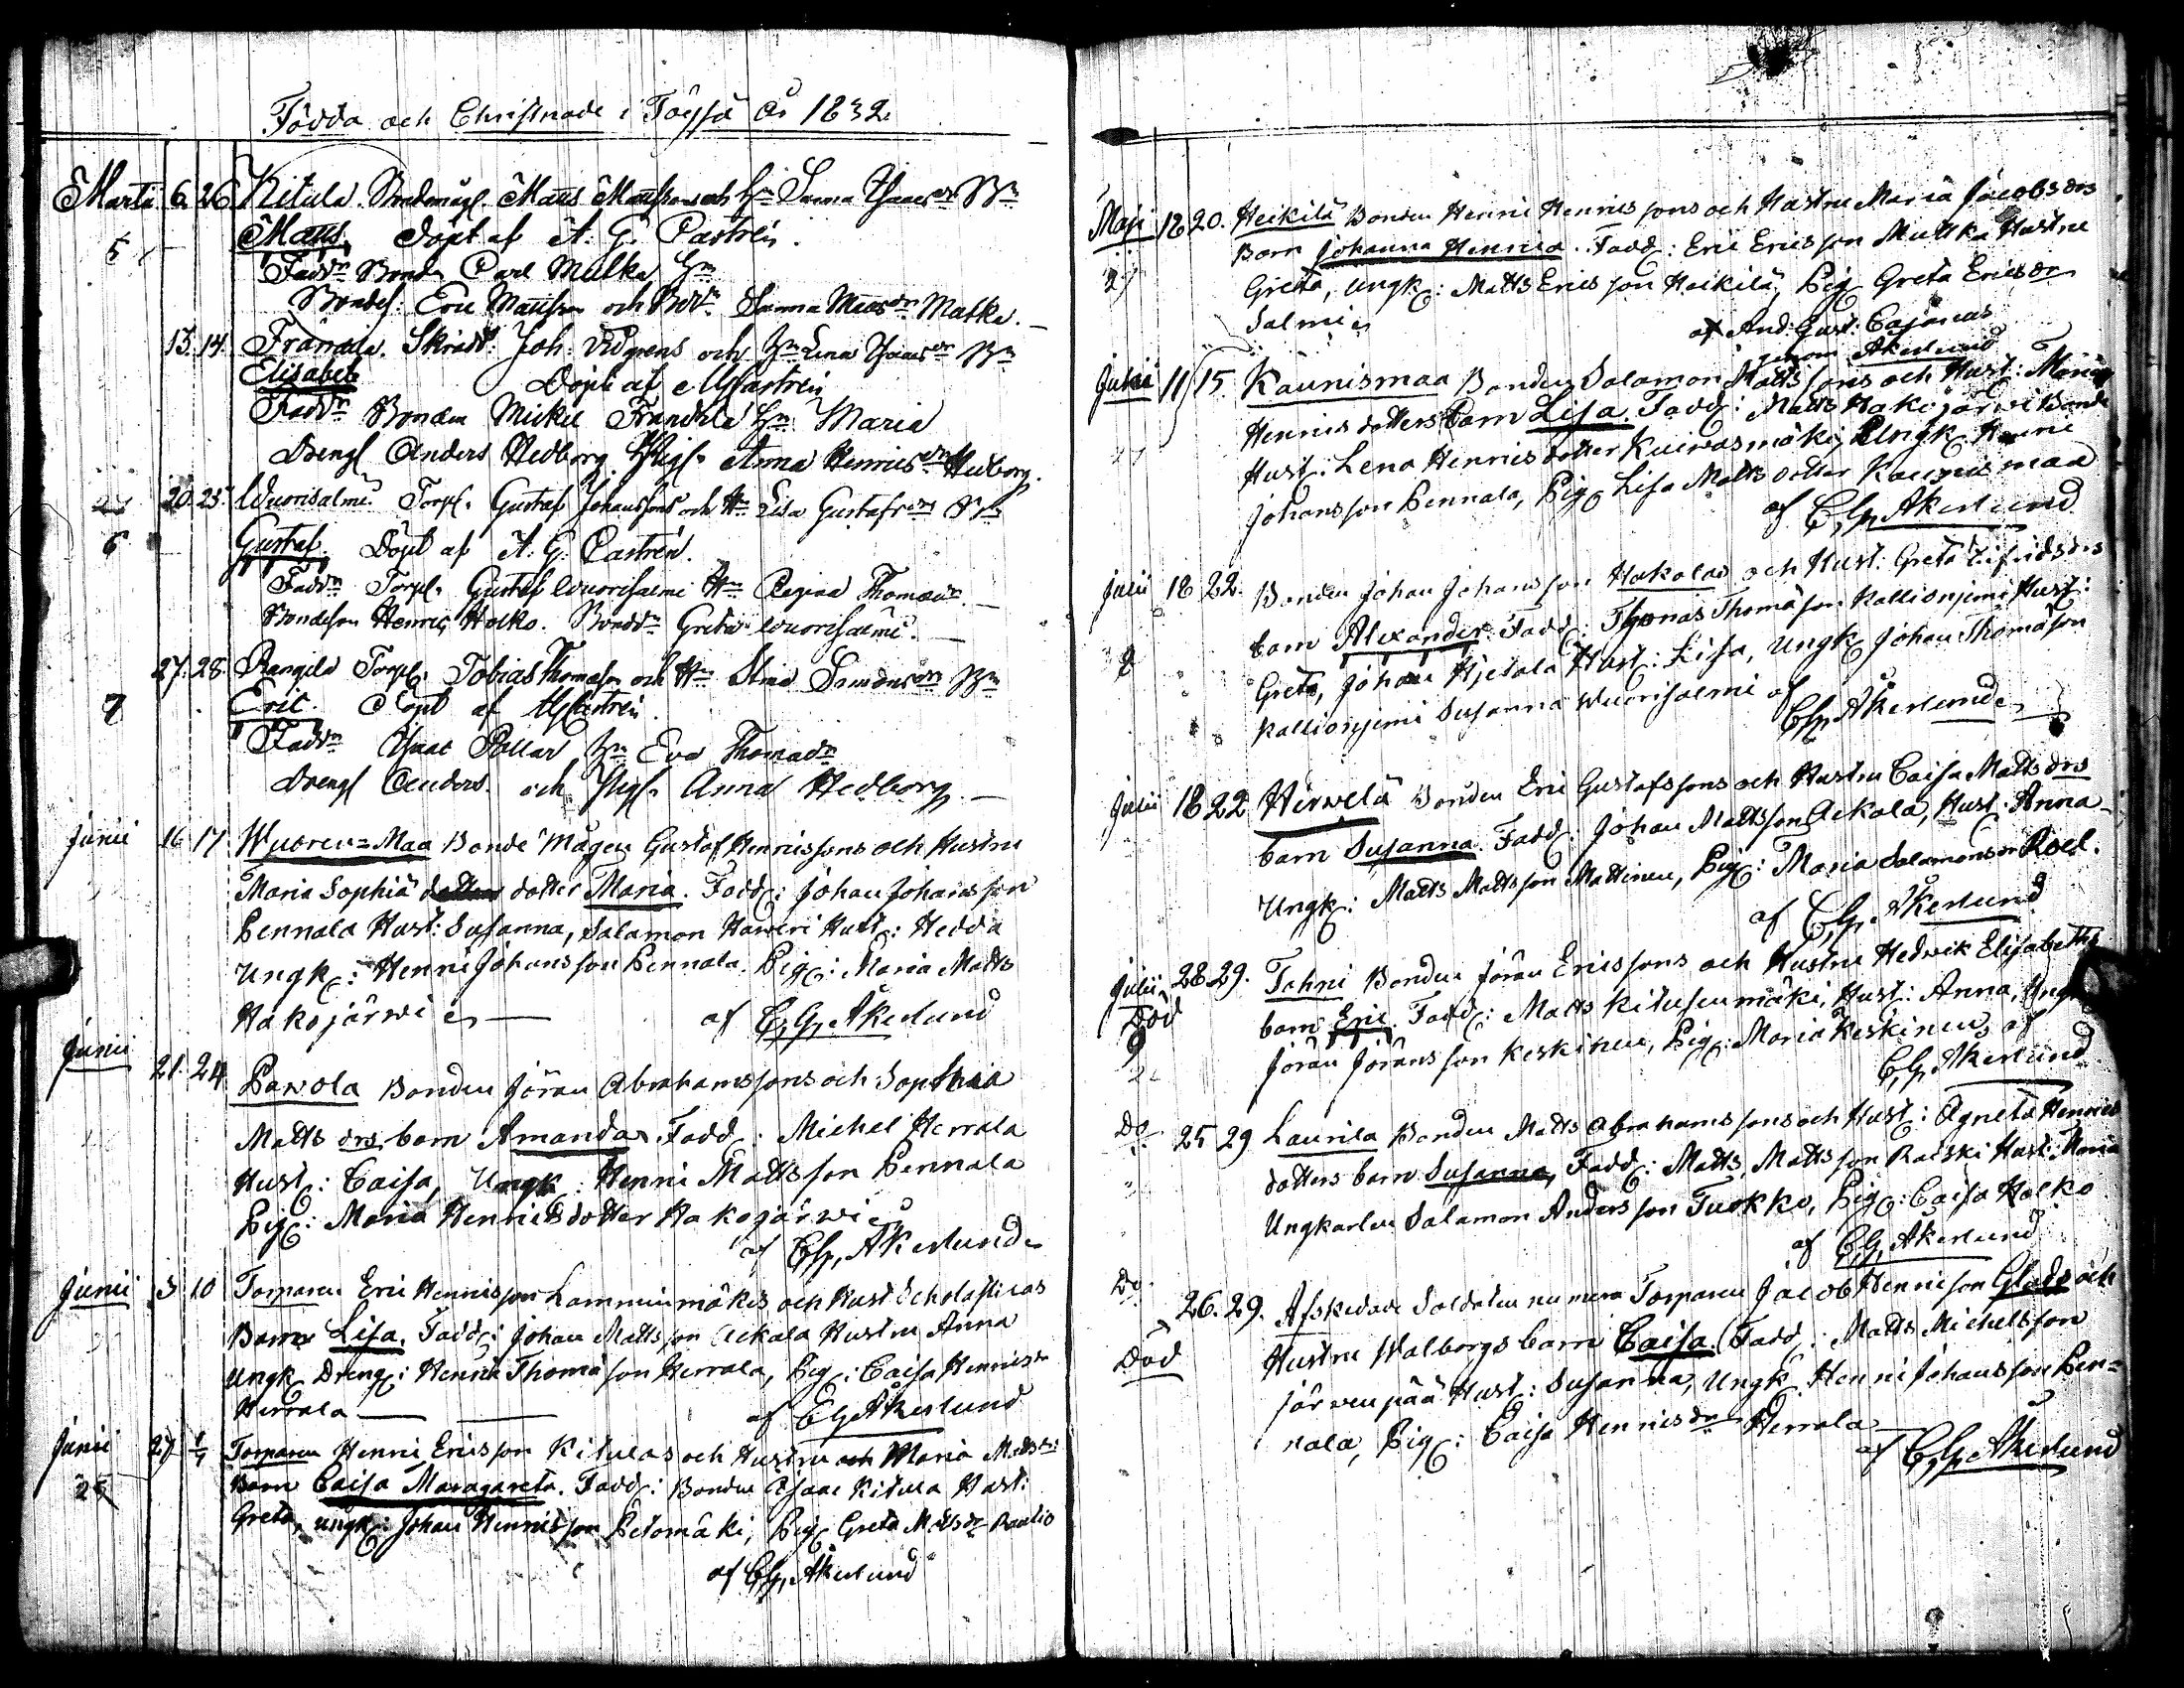 Födda och Christnade i Töysä år 1832
Martii 6. 26 Kitula. Bondmåg. Matts Mattsson och Hu Sanna Isaacsdr Bn
5 Matts. Döpt af A. G. Castrén.
Faddr Bond. Carl Mulka Hu
Bondes. Eric Mattss. och Bdr Sanna Mattsdr Matka.
13. 14. Främäla. Skrädd. Joh. Vidgrens och Hu Lena Isaacsdr Bn
Elisabet Döpt af A G Castrén
Faddr Bonden Mickel Främäla Hu Maria
Drengs. Anders Hedborg Pigs. Anna Henricsdr Hedborg.
20. 25. Wuorisalmi Torp. Gustaf Johanssons och Hu Lisa Gustafsdrs Bn
6 Gustaf. Döpt af A. G. Castrén.
Faddr Torp. Gustaf Wuorisalmi Hu Regina Thomasdr
Bondeson Henric Holko. Bondr Greta Wuorisalmi.
27. 28. Torp. Tobias Thomass. och Hu Stina Simonsdr Bn
7 Eric. Döpt af A G Castrén.
Faddr Isaac Pollar Hu Eva Thomasdr
Drengs Anders och Pigs. Anna Hedborg
Junii 16 17 Wuoren=Maa Bonde Mågen Gustaf Henrissons och Hustru
Maria Sophiä dotter Maria. Fadd: Johan Johansson
Pennala Hust: Susanna, Salamon Haweri Hust: Hedda
Ungk: Henri Johansson Pennala. Pig: Maria Matts
Hakojärwi af C. G. Åkerlund
Junii 21. 24 Pawola Bonden Jöran Abrahamssons och Sophia
Matts drs barn Amanda Fadd: Michel Herrala
Hust: Caisa, Ungk: Henri Mattsson Pennala
Pig: Maria Henrisdotter Hakojärwi
af C G, Åkerlund
Junii 3 10 Torparen Eric Henrisson Lamminmäkis och Hust Scholasticas
Barn Lisa. Fadd: Johan Mattsson Ackala Hustru Anna
Ungk Dreng: Henric Thomasson Herrala, Pig: Caisa Henrisdr
Herrala af C G Åkerlund
Junii 27 1/7 Torparen Henric Ericsson Kitulas och Hustru och Maria Mattsdr:
25 Barn Caisa Maragareta. Fadd: Bonden Isaac Kitula Hust:
Greta, ungk: Johan Henrisson Petomäki, Pig Greta Mattsdr Rautio
af C G, Åkerlund
Maji 18 20. Heikilä Bonden Henric Henrics sons och Hustru Maria Jacobs drs
Barn Johanna Henrica. Fadd: Eric Ericsson Mulkka Hustru
Greta, Ungk: Matts Ericsson Heikilä, Pig Greta Ericsdr
Salmi af And: Gust: Cajanus
genom Åkerlund
Junii 11 15. Kaunismaa Bonden Salomon Mattssons och Hust: Maria
Henris dotters barn Lisa. Fadd: Matts Hakojärwi Bonde
Hust: Lena Henrisdotter Kuiwasmäki, Ungk Henric
Johansson Pennala, Pig Lisa Mattsdotter Kaunismaa
af C, G, Åkerlund
Julii 18 22. Bonden Johan Johansson Hakolas och Hust: Greta Zifridsdrs
8 barn Alexander. Fadd: Thomas Thomasson Kallionjemi Hust:
Greta, Johan Hjetala Hust: Lisa, Ungk Johan Thomasson
Kallionjemi Susanna Wuorisalmi af
C G, Åkerlund
Julii 18 22 Hirwelä Bonden Eric Gustafssons och Hustru Caisa Mattsdrs
barn Susanna. Fadd: Johan Mattsson Ackala, Hust: Anna
Ungk: Matts Mattsson Mattinen, Pig: Maria Salamonsdr Roel.
af C, G, Åkerlund
Julii 28 29. Tahni Bonden Jöran Ericssons och Hustru Hedwik Elisabeths
Död barn Eric. Fadd: Matts Kitusenmäki, Hust: Anna, Ungk
9 Jöran Jöransson Keskinen, Pig: Maria Keskinen, af
C, G, Åkerlund
Do 25 29 Laurila Bonden Matts Abrahamssons och Hust: Agneta Henris
dotters barn Susanna, Fadd: Matts Mattsson Raiski Hust: Maria
Ungkarlen Salamon Andersson Tuokko, Pig: Caisa Holko
af C G, Åkerlund
Do 26. 29. Afskedade Soldaten nu mera Torparen Jacob Henrisson Glads och
Död Hustru Walborgs barn Caisa Fadd: Matts Michelsson
Järwenpää Hust: Susanna, Ungk Henri Johansson Pen=
nala, Pig: Caisa Henrisdr Herrala
af C, G, Åkerlund